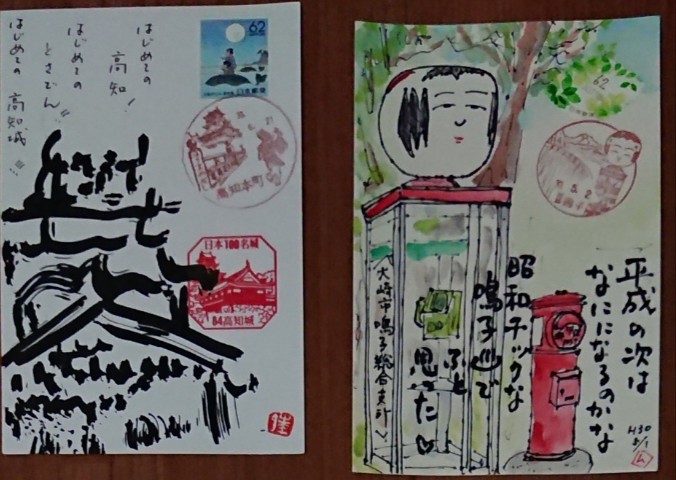 はじめての
高知！
はじめての
とさでん!!
はじめての 高知城!!!
62
日本郵便
高知本町
日本100名城
84高知城
佳
62
平成の次は
なにになるのかな
昭和チックな
鳴子㕝で
ふと
思った
大崎市鳴子総合支所
H30
5/1
ム